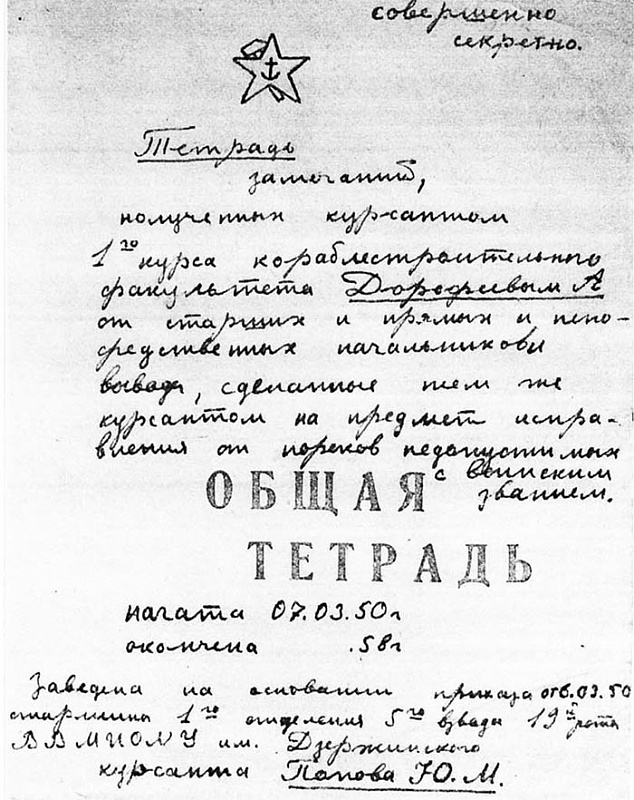 совершенно
секретно.
Тетрадь
замечаний,
полученных курсантом
1го курса кораблестроительного
факультета Дорофеевым А
от старших и прямых и непо-
средственных начальников и
вывод, сделанные тем же
курсантом на предмет испра-
вления от пороков недопустимых
с воинским
званием.
ОБЩАЯ
ТЕТРАДЬ
начата 07.03.50г
окончена .58г
Заведена на основании приказа от 6.03.50
старшины 1го отделения 5го взвода 19й роты
ВВМИОЛУ им. Дзержинского
курсанта Попова Ю.М.